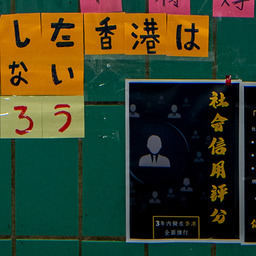 した香港は
ない
ろう
社會信用評分
3年內擬在香港
全面推行